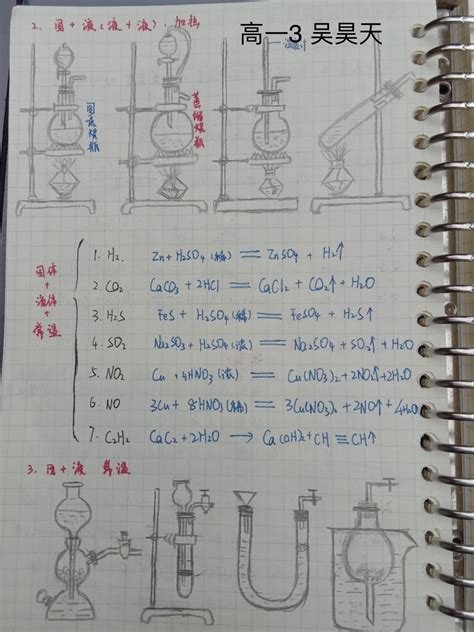 2. 固+液(液+液)·加热
高一3 吴昊天
圆底烧瓶
蒸馏烧瓶
温度计
固体+液体+常温
1. H₂. Zn+H₂SO₄(稀) == ZnSO₄ + H₂↑
2. CO₂ CaCO₃+2HCl == CaCl₂+CO₂↑+H₂O
3. H₂S FeS + H₂SO₄(稀) == FeSO₄ + H₂S↑
4. SO₂ Na₂SO₃+H₂SO₄(浓) == Na₂SO₄+SO₂↑+H₂O
5. NO₂ Cu+4HNO₃(浓) == Cu(NO₃)₂+2NO₂↑+2H₂O
6. NO 3Cu+8HNO₃(稀) == 3Cu(NO₃)₂+2NO↑+4H₂O
7. C₂H₂ CaC₂+2H₂O → Ca(OH)₂+CH≡CH↑
3. 固+液 常温